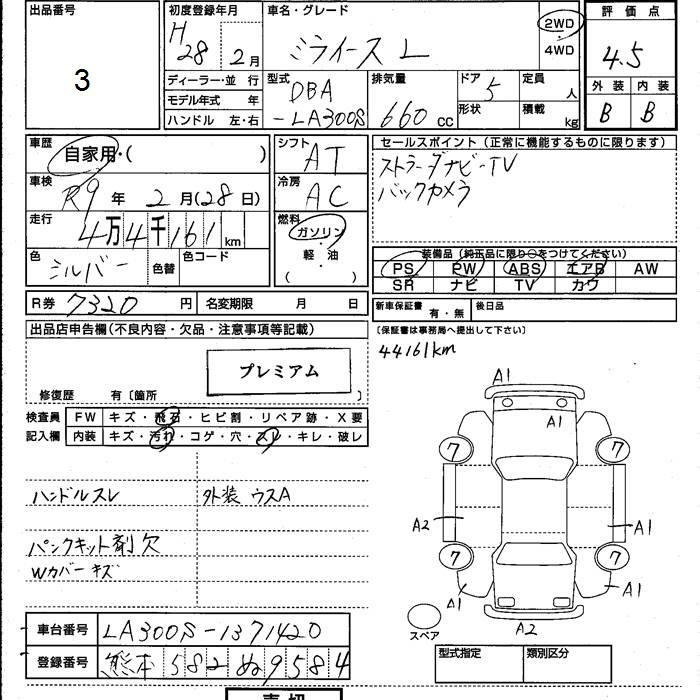 出品番号
3
初度登録年月
H28 2月
ディーラー・並 行
モデル年式 年
ハンドル 左・右
車名・グレード
ミライース L
2WD
4WD
型式
DBA
-LA300S
排気量
660 cc
ドア
5
形状
定員
人
積載
kg
評価点
4.5
外装 内装
B B
車歴
自家用・( )
車検
R9 年 2 月(28日)
走行
4万4千161km
色
シルバー
色替
色コード
シフト
AT
冷房
AC
燃料
ガソリン
軽・油
( )
セールスポイント(正常に機能するものに限ります)
ストラーダナビ・TV
バックカメラ
装備品(純正品に限り○をつけてください)
PS PW ABS エアB AW
SR ナビ TV カワ
R券 7320 円 名変期限 月 日
新車保証書 有・無 後日品
(保証書は事務局へ提出して下さい)
出品店申告欄(不良内容・欠品・注意事項等記載)
プレミアム
修復歴 有〔箇所 〕
44161km
検査員 FW キズ・飛石・ヒビ割・リペア跡・X要
記入欄 内装 キズ・汚れ・コゲ・穴・スレ・キレ・破レ
ハンドルスレ
外装 ウスA
パンクキット剤欠
Wカバーキズ
A1
A1
7 7
A2 A1
7 7
A1 A1
A2
スペア
車台番号 LA300S-1371420
登録番号 熊本 582 ぬ 9584
型式指定 類別区分